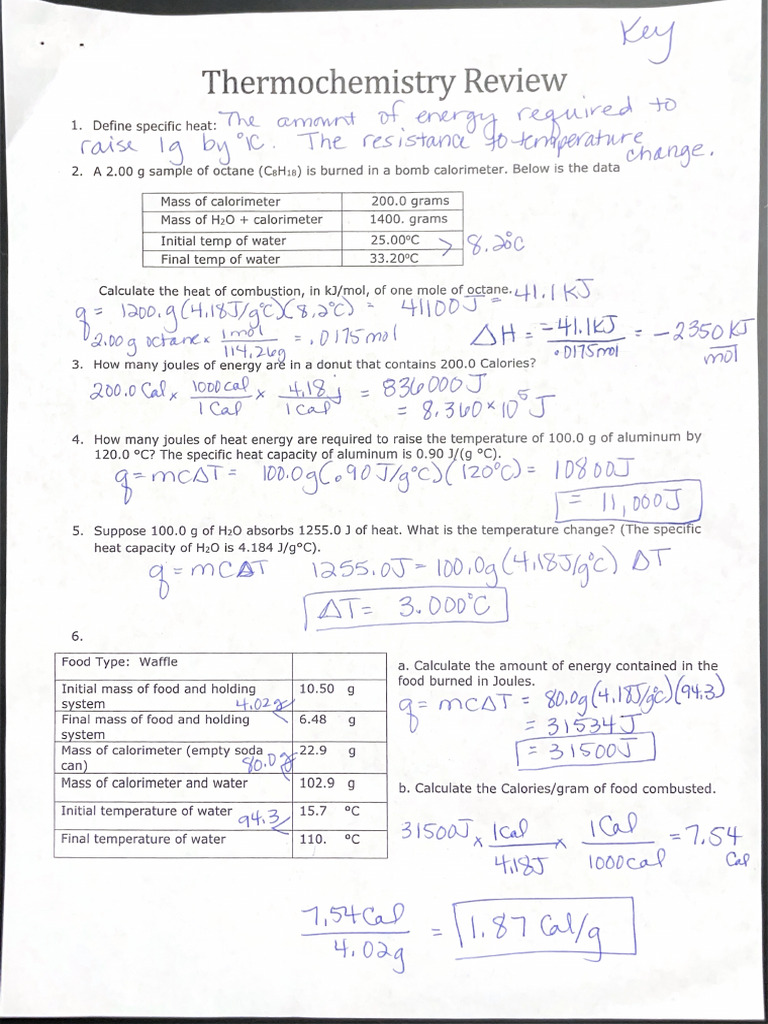 Key
Thermochemistry Review
1. Define specific heat: The amount of energy required to
raise 1g by 1°C. The resistance to temperature
change.
2. A 2.00 g sample of octane (C₈H₁₈) is burned in a bomb calorimeter. Below is the data
Mass of calorimeter 200.0 grams
Mass of H₂O + calorimeter 1400. grams
Initial temp of water 25.00°C
Final temp of water 33.20°C
> 8.2°C
Calculate the heat of combustion, in kJ/mol, of one mole of octane.
q = 1200.g(4.18J/g°C)(8.2°C) = 41100J = 41.1 KJ
2.00g octane × 1mol/114.26g = .0175mol
ΔH = -41.1KJ/.0175mol = -2350 KJ/mol
3. How many joules of energy are in a donut that contains 200.0 Calories?
200.0 Cal × 1000cal/1 Cal × 4.18 j/1 cal = 836000 J
= 8.360 × 10⁵ J
4. How many joules of heat energy are required to raise the temperature of 100.0 g of aluminum by
120.0 °C? The specific heat capacity of aluminum is 0.90 J/(g °C).
q = mCΔT = 100.0g(.90 J/g°C)(120°C) = 10800J
= 11,000J
5. Suppose 100.0 g of H₂O absorbs 1255.0 J of heat. What is the temperature change? (The specific
heat capacity of H₂O is 4.184 J/g°C).
q = mCΔT 1255.0J = 100.0g(4.18J/g°C) ΔT
ΔT = 3.000°C
6.
Food Type: Waffle
Initial mass of food and holding
system 10.50 g
4.02g
Final mass of food and holding
system 6.48 g
Mass of calorimeter (empty soda
can) 22.9 g
80.0g
Mass of calorimeter and water 102.9 g
Initial temperature of water 15.7 °C
94.3
Final temperature of water 110. °C
a. Calculate the amount of energy contained in the
food burned in Joules.
q = mCΔT = 80.0g(4.18J/g°C)(94.3)
= 31534 J
= 31500J
b. Calculate the Calories/gram of food combusted.
31500J × 1cal/4.18J × 1Cal/1000cal = 7.54
Cal
7.54Cal/4.02g = 1.87 Cal/g